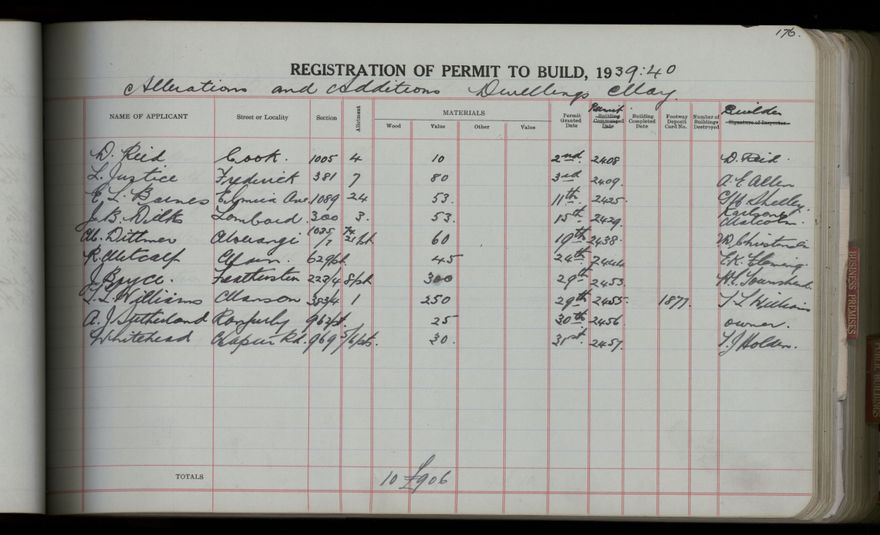 176.
REGISTRATION OF PERMIT TO BUILD, 1939:40
Alterations and Additions Dwellings May.
NAME OF APPLICANT Street or Locality Section Allotment MATERIALS Wood Value Other Value Permit Granted Date Permit Building Commenced Date Building Completed Date Footway Deposit Card No. Number of Buildings Destroyed Builder Signature of Inspector
D. Reid Cook. 1005 4 10 2nd 2408 D. Reid.
L. Justice Frederick 381 7 80 3rd 2409. A. E. Allen
E. L. Barnes Ave. 1089 24 53. 11th 2425. Shelley.
J. B. Dilks Lombard 300 3. 53. 15th 2429.
Dittmer 60 19th 2438.
R. Metcalf Main. 629 45 24th 2444
J. Bryce. Featherston 223/4 8/pt 300 29th 2453. Townshend
T. L. Williams Manson 353/4 1 250 29th 2455. 1877. T. L. Williams
A. J. Sutherland Ranfurly 962/pt. 25 30th 2456. owner.
Whitehead Rd. 969 5/6/pts. 30. 31st. 2457. T. J. Holden.
TOTALS 10 £906
BUSINESS PREMISES